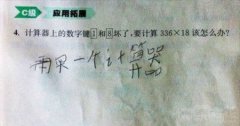 C级 应用拓展
4. 计算器上的数字键1和8坏了,要计算336×18该怎么办?
用另一个计算器